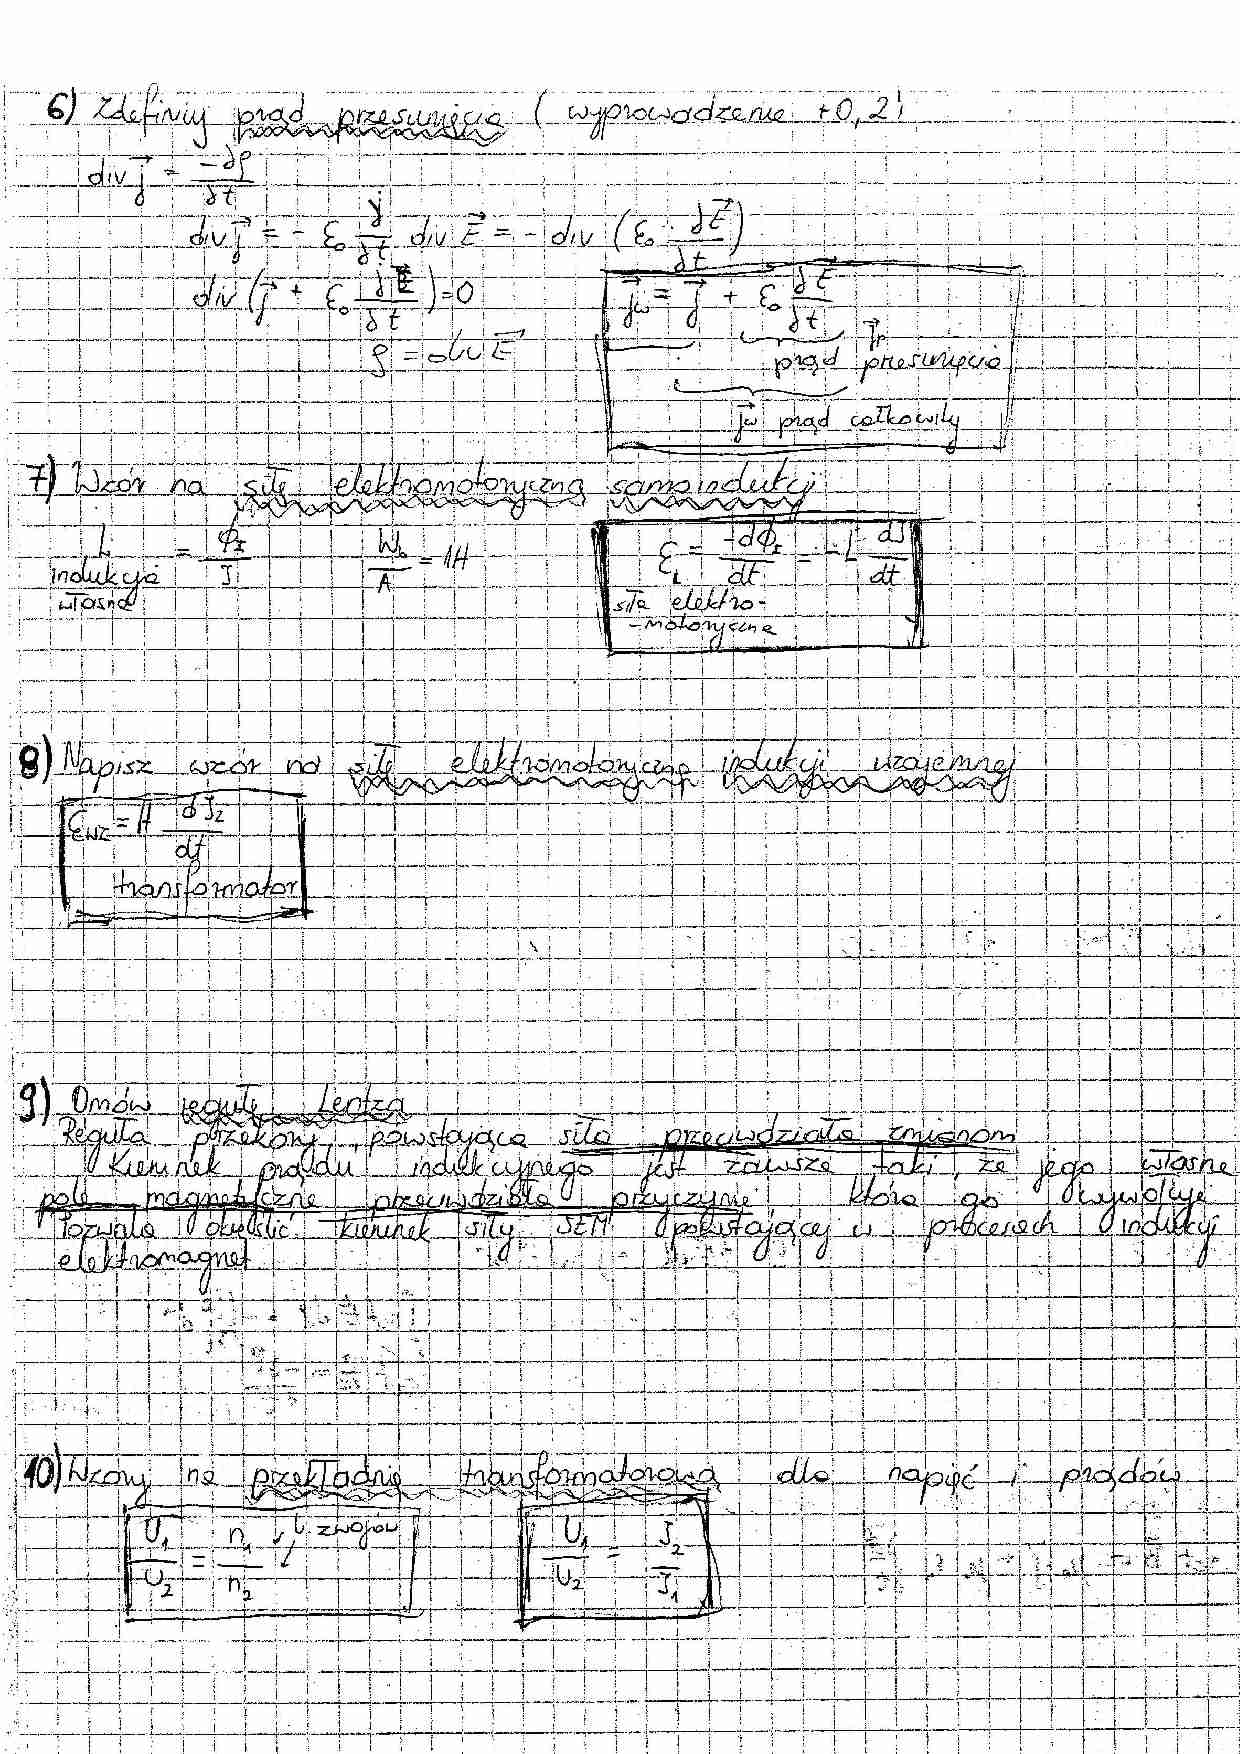 6) Zdefiniuj prąd przesunięcia (wyprowadzenie +0,2!
div j⃗ = -∂ρ/∂t
div j⃗ = - ε₀ ∂/∂t div E⃗ = - div (ε₀ · ∂E⃗/∂t)
div (j⃗ + ε₀ ∂E⃗/∂t) = 0
ρ = div E⃗
j⃗w = j⃗ + ε₀ ∂E⃗/∂t
prąd przesunięcia
j⃗w prąd całkowity
7) Wzór na siłę elektromotoryczną samoindukcji
L = ΦI/J
indukcja
własna
Wb/A = 1H
εL = -dΦI/dt = -L dJ/dt
siła elektro-
-motoryczna
8) Napisz wzór na siłę elektromotoryczną indukcji wzajemnej
εwz = M dJ₂/dt
transformator
9) Omów regułę Lentza
Reguła przekory, powstająca siła przeciwdziała zmianom
Kierunek prądu indukcyjnego jest zawsze taki, że jego własne
pole magnetyczne przeciwdziała przyczynie która go wywołuje
Pozwala określić kierunek siły SEM powstającej w procesach indukcji
elektromagnet
10) Wzory na przekładnię transformatorową dla napięć i prądów
U₁/U₂ = n₁/n₂ l. zwojów
U₁/U₂ = J₂/J₁